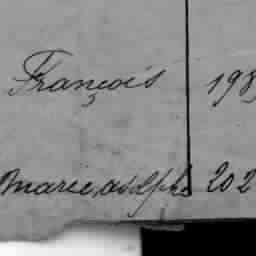 François 198
Marie, adolphe 202